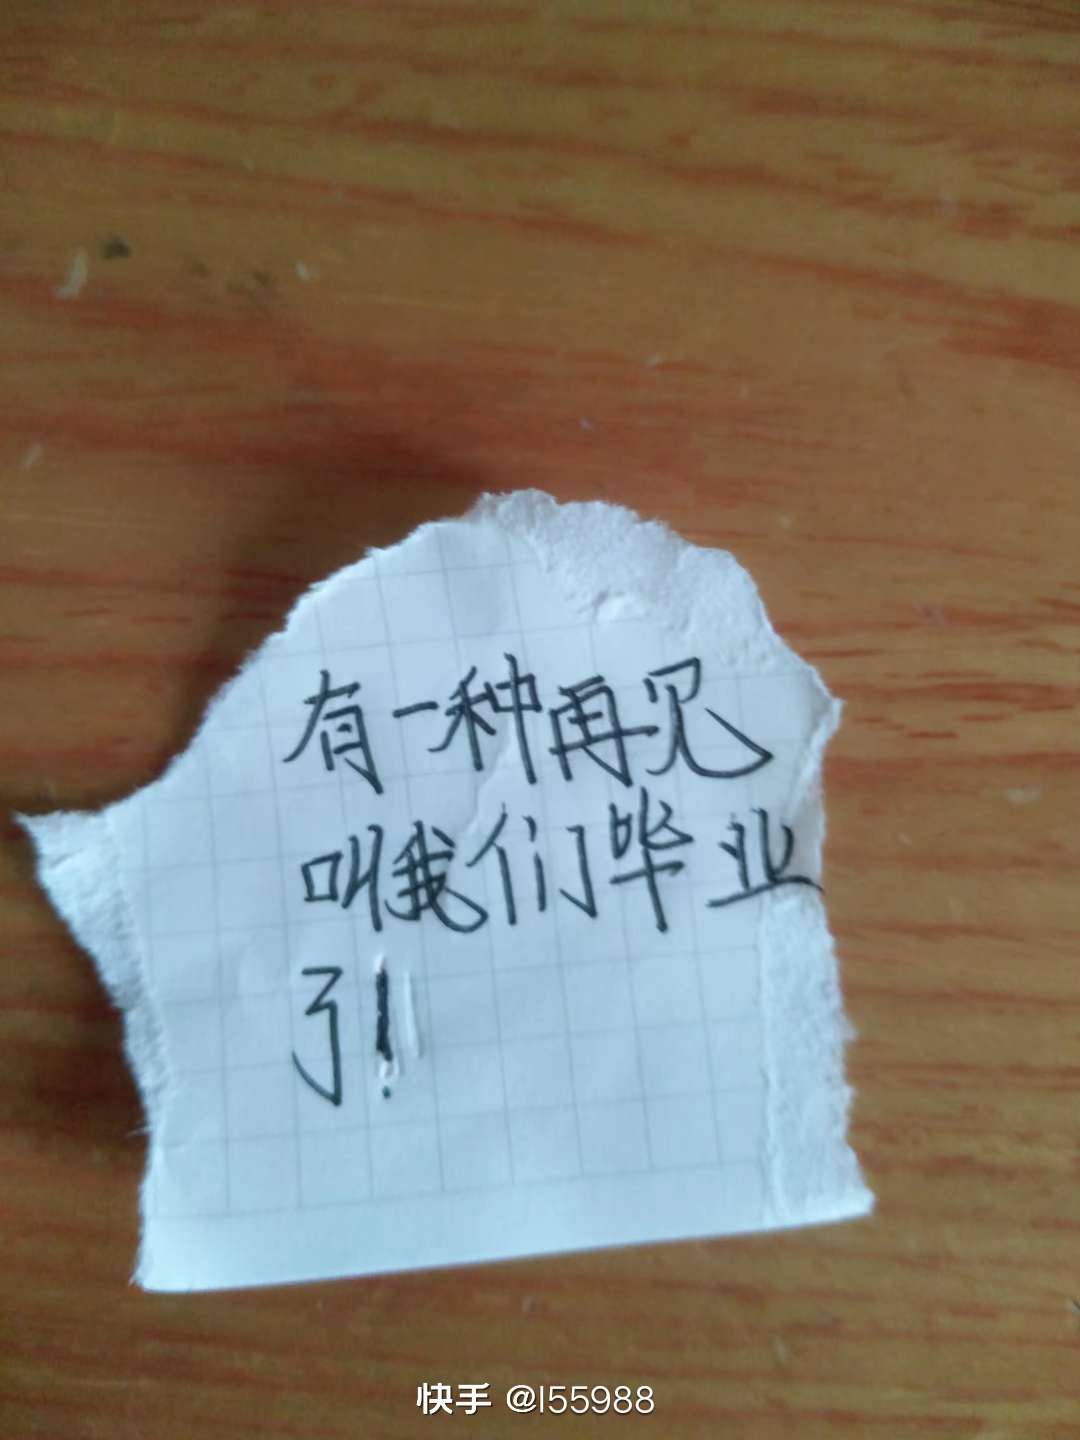 有一种再见
叫我们毕业
了！
快手 @l55988